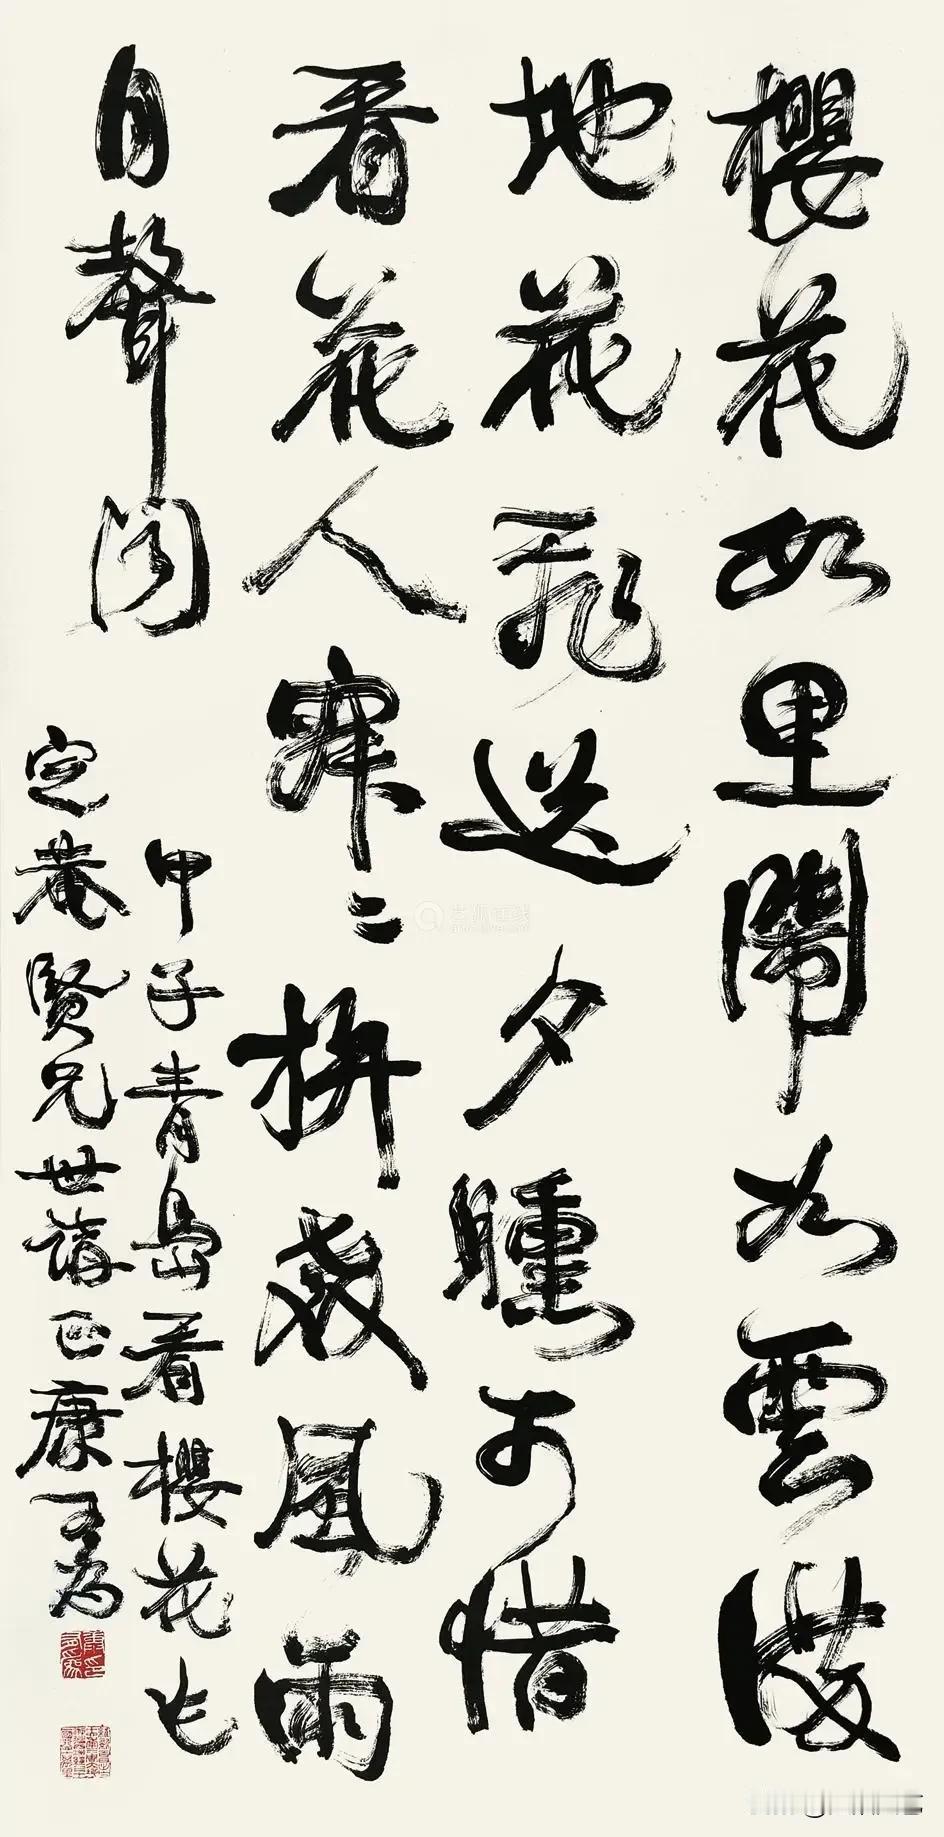 櫻花里鬧如雲滿
地花飛送夕曛可惜
看花人寂二拚教風雨
自聲聞
甲子青島看櫻花
定菴賢兄世講正康有為